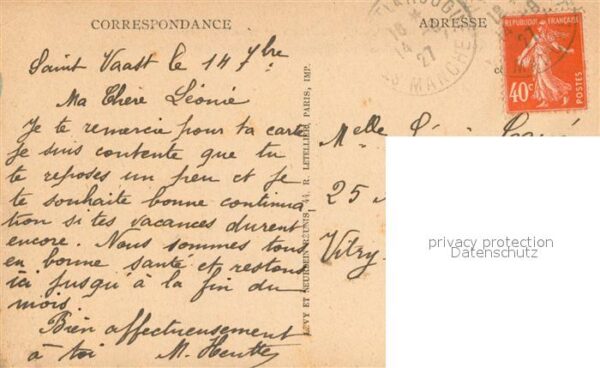 CORRESPONDANCE
ADRESSE
Saint Vaast le 14 7bre
Ma Chère Léonie
Je te remercie pour ta carte
je suis contente que tu
te reposes un peu et je
te souhaite bonne continua
tion si tes vacances durent
encore. Nous sommes tous
en bonne santé et restons
ici jusqu'à la fin du
mois.
Bien affectueusement
à toi M.
LEVY ET NEURDEIN REUNIS, 44, R. LETELLIER, PARIS, IMP.
MANCHE
14
27
REPUBLIQUE FRANÇAISE
40c
POSTES
Melle
25
Vitry
privacy protection
Datenschutz